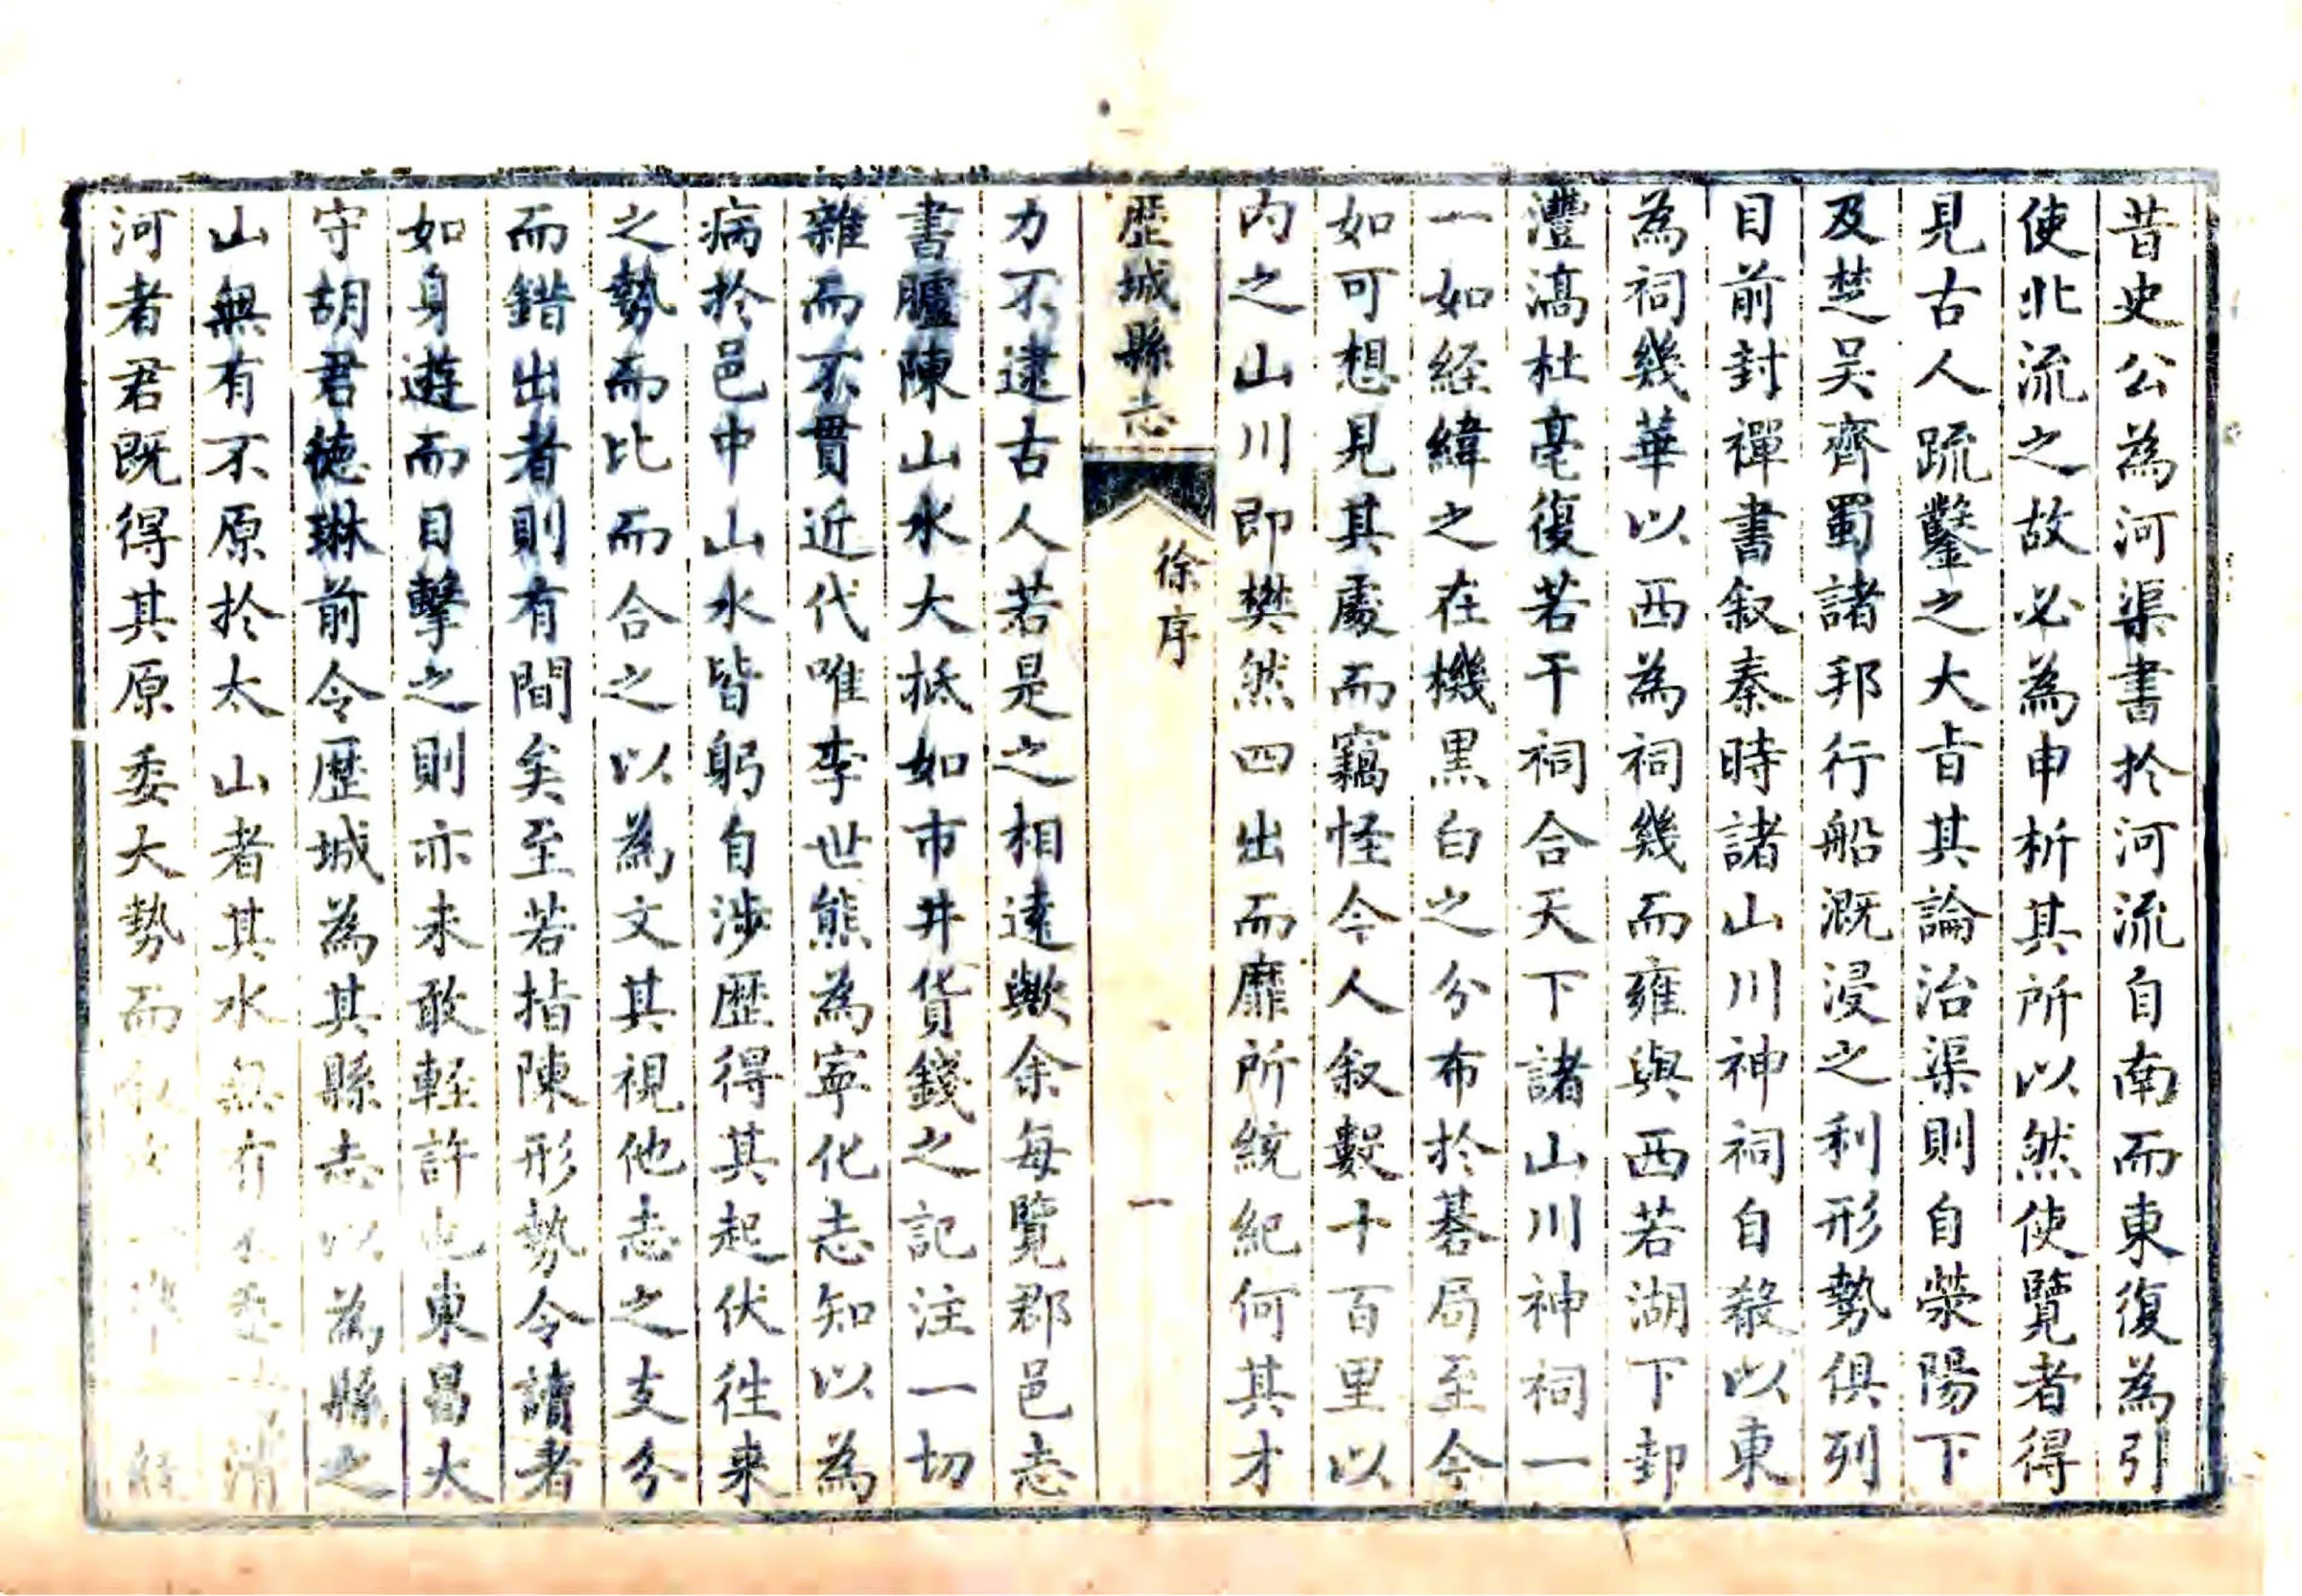 昔史公為河渠書於河流自南而東復為引
使北流之故必為申析其所以然使覽者得
見古人疏鑿之大旨其論治渠則自滎陽下
及楚吴齊蜀諸邦行船溉浸之利形勢俱列
目前封禪書叙秦時諸山川神祠自殽以東
為祠幾華以西為祠幾而雍與西若湖下邽
灃滈杜亳復若干祠合天下諸山川神祠一
一如経緯之在機黑白之分布於碁局至今
如可想見其處而竊怪今人叙數十百里以
内之山川即樊然四出而靡所統紀何其才
歴城縣志
徐序
一
力不逮古人若是之相遠歟余每覽郡邑志
書臚陳山水大抵如市井貨錢之記注一切
雜而不貫近代唯李世熊為寧化志知以為
病於邑中山水皆躬自涉歴得其起伏徃来
之勢而比而合之以為文其視他志之支分
而錯出者則有間矣至若指陳形勢令讀者
如身遊而目擊之則亦未敢輊許也東昌太
守胡君德琳前令歴城為其縣志以為縣之
山無有不原於太山者其水無有不 清
河者君既得其原委大勢而叙次